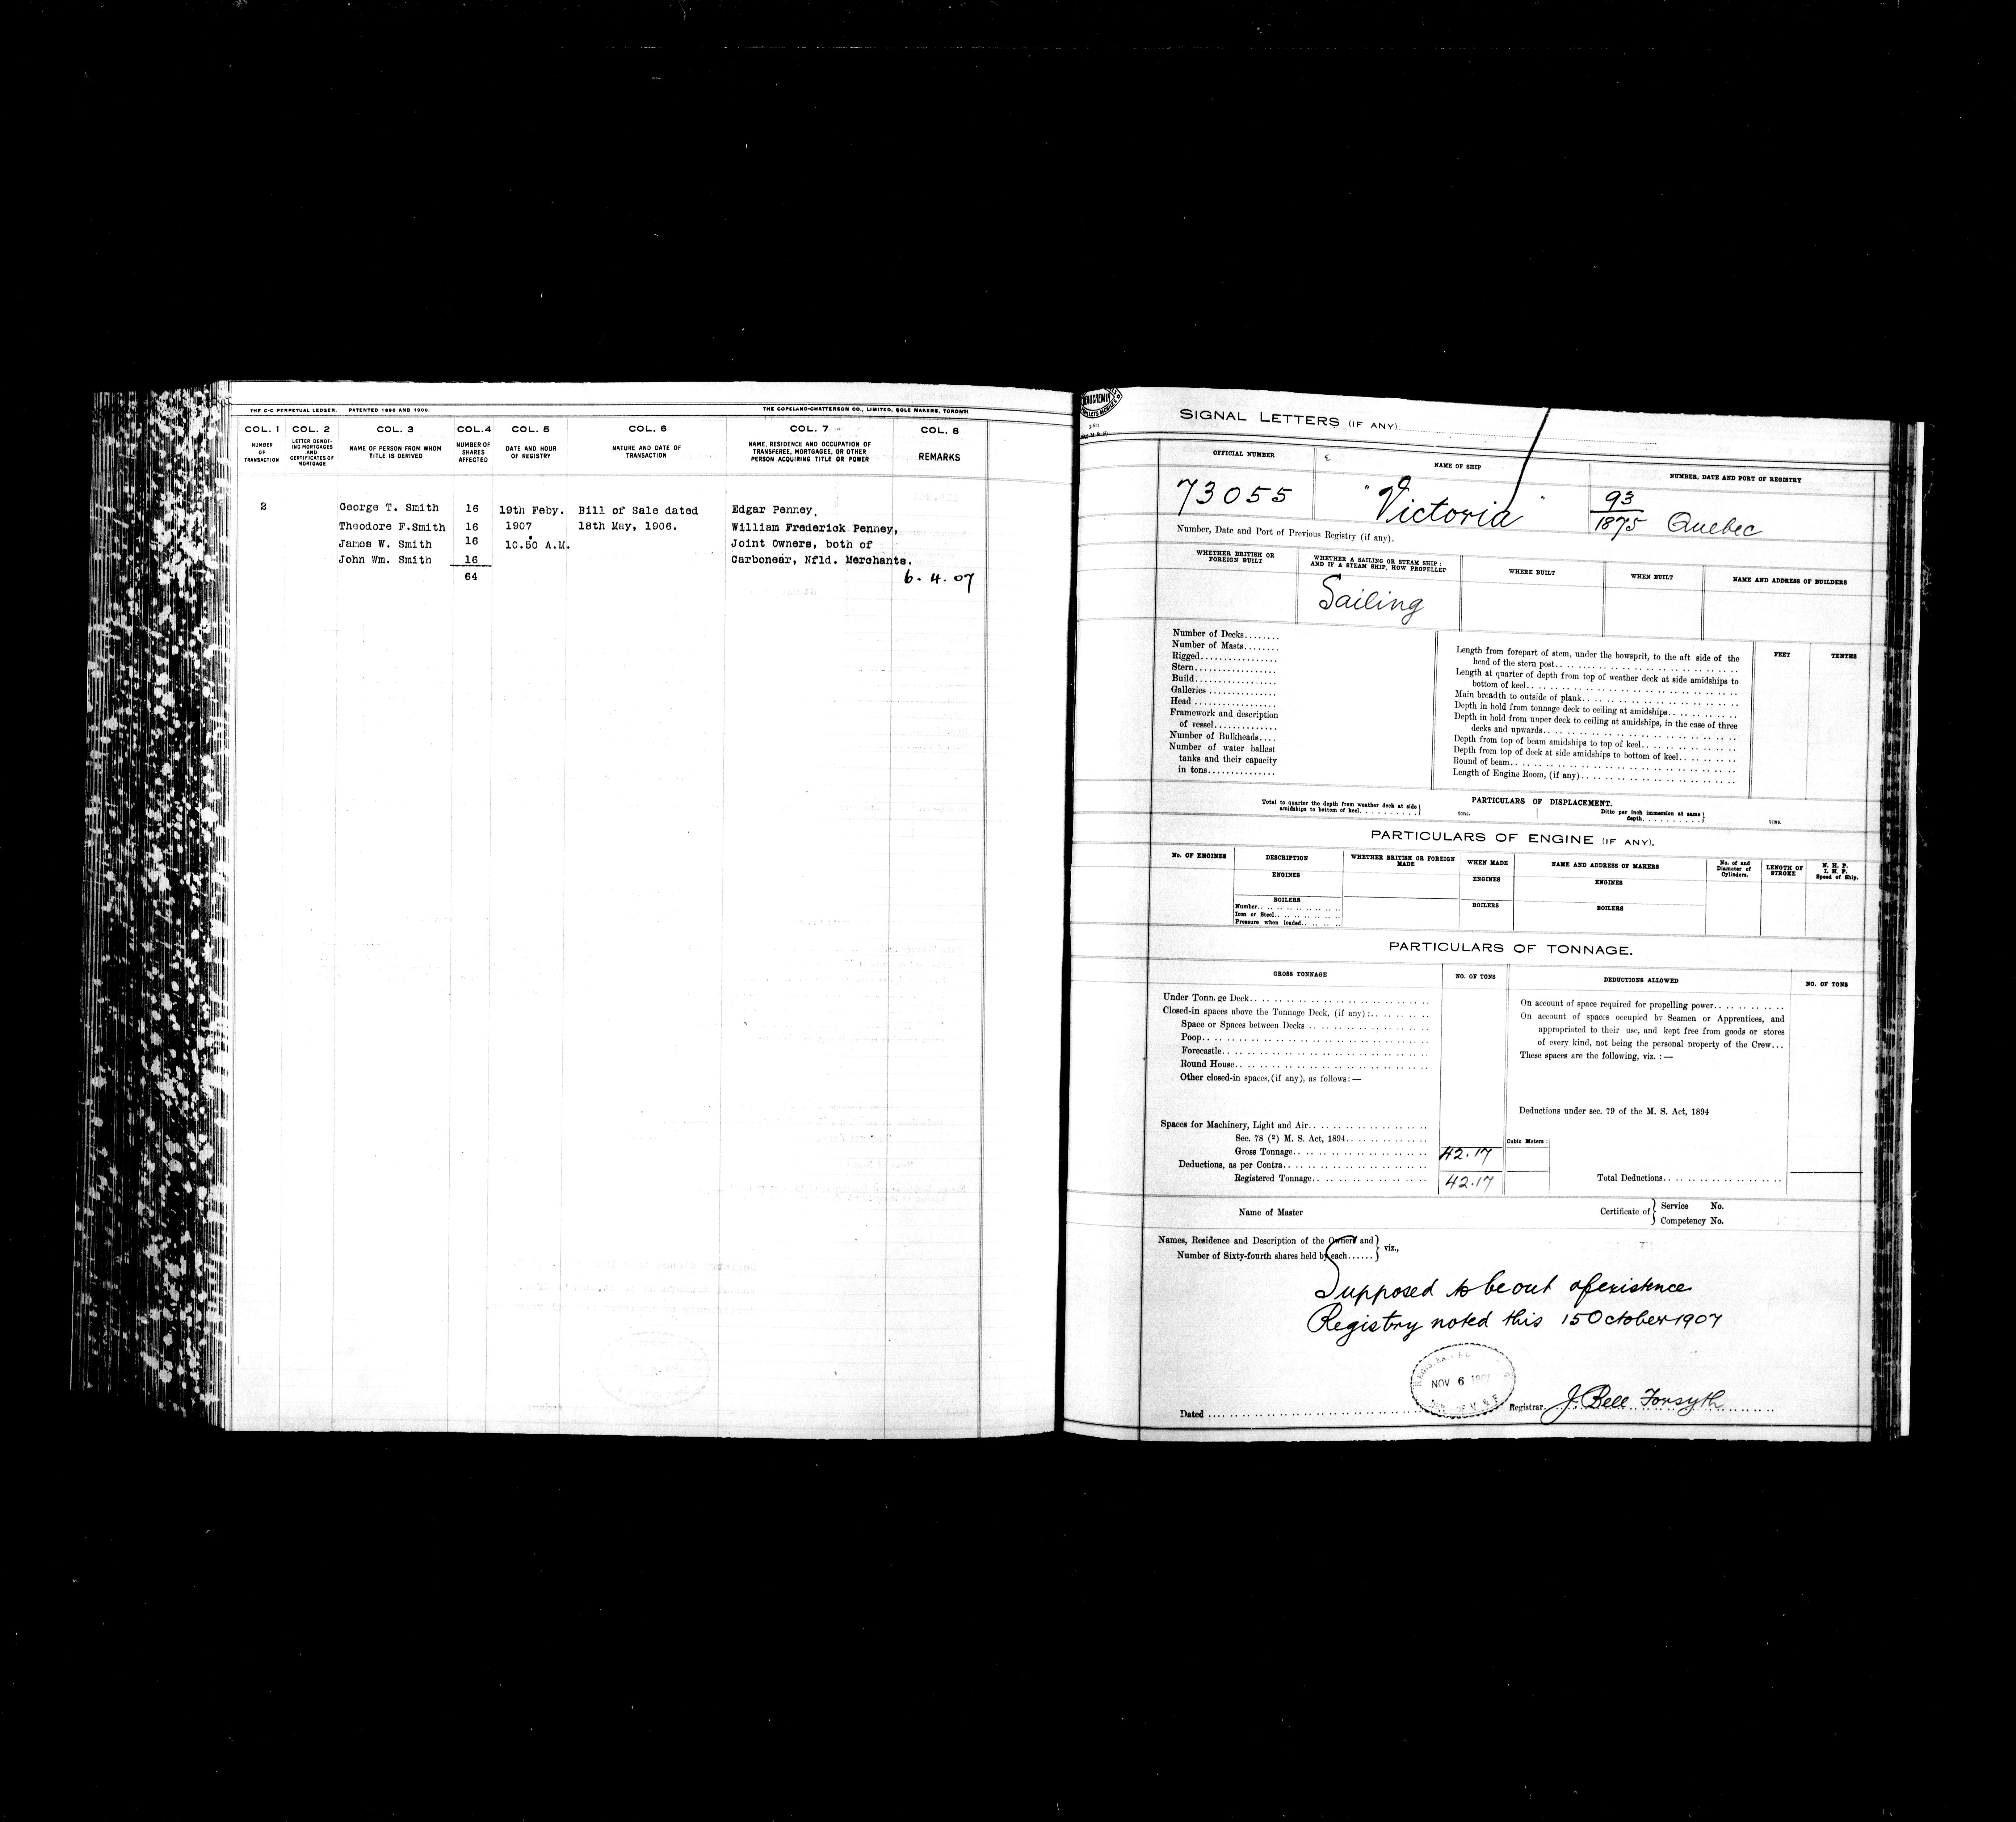 THE C-C PERPETUAL LEDGER. PATENTED 1896 AND 1900. THE COPELAND-CHATTERSON CO., LIMITED, SOLE MAKERS, TORONTO
COL. 1 COL. 2 COL. 3 COL. 4 COL. 5 COL. 6 COL. 7 COL. 8
NUMBER OF TRANSACTION
LETTER DENOTING MORTGAGES AND CERTIFICATES OF MORTGAGE
NAME OF PERSON FROM WHOM TITLE IS DERIVED
NUMBER OF SHARES AFFECTED
DATE AND HOUR OF REGISTRY
NATURE AND DATE OF TRANSACTION
NAME, RESIDENCE AND OCCUPATION OF TRANSFEREE, MORTGAGEE, OR OTHER PERSON ACQUIRING TITLE OR POWER
REMARKS
2 George T. Smith 16 19th Feby. Bill of Sale dated Edgar Penney,
Theodore F.Smith 16 1907 18th May, 1906. William Frederick Penney,
James W. Smith 16 10.50 A.M. Joint Owners, both of
John Wm. Smith 16 Carbonear, Nfld. Merchants.
64 6.4.07
BEAUCHEMIN
SIGNAL LETTERS (IF ANY)
OFFICIAL NUMBER NAME OF SHIP NUMBER, DATE AND PORT OF REGISTRY
73055 "Victoria" 93
1875 Quebec
Number, Date and Port of Previous Registry (if any).
WHETHER BRITISH OR FOREIGN BUILT
WHETHER A SAILING OR STEAM SHIP; AND IF A STEAM SHIP, HOW PROPELLED
WHERE BUILT
WHEN BUILT
NAME AND ADDRESS OF BUILDERS
Sailing
Number of Decks........
Number of Masts........
Rigged.................
Stern..................
Build..................
Galleries ...............
Head ..................
Framework and description
of vessel..............
Number of Bulkheads....
Number of water ballast
tanks and their capacity
in tons...............
FEET TENTHS
Length from forepart of stem, under the bowsprit, to the aft side of the
head of the stern post..................
Length at quarter of depth from top of weather deck at side amidships to
bottom of keel..................
Main breadth to outside of plank..................
Depth in hold from tonnage deck to ceiling at amidships............
Depth in hold from upper deck to ceiling at amidships, in the case of three
decks and upwards..................
Depth from top of beam amidships to top of keel...............
Depth from top of deck at side amidships to bottom of keel.........
Round of beam..................
Length of Engine Room, (if any)..................
PARTICULARS OF DISPLACEMENT.
Total to quarter the depth from weather deck at side
amidships to bottom of keel.......... tons.
Ditto per inch immersion at same
depth.......... tons.
PARTICULARS OF ENGINE (IF ANY).
No. OF ENGINES
DESCRIPTION
WHETHER BRITISH OR FOREIGN MADE
WHEN MADE
NAME AND ADDRESS OF MAKERS
No. of and Diameter of Cylinders.
LENGTH OF STROKE
N. H. P.
I. H. P.
Speed of Ship.
ENGINES ENGINES ENGINES
BOILERS BOILERS BOILERS
Number..................
Iron or Steel..................
Pressure when loaded..........
PARTICULARS OF TONNAGE.
GROSS TONNAGE NO. OF TONS DEDUCTIONS ALLOWED NO. OF TONS
Under Tonnage Deck..................
Closed-in spaces above the Tonnage Deck, (if any):..........
Space or Spaces between Decks ..................
Poop..................
Forecastle..................
Round House..................
Other closed-in spaces,(if any), as follows:—
Spaces for Machinery, Light and Air..................
Sec. 78 (2) M. S. Act, 1894..............
Gross Tonnage.................. 42.17
Deductions, as per Contra..................
Registered Tonnage.................. 42.17
On account of space required for propelling power............
On account of spaces occupied by Seamen or Apprentices, and
appropriated to their use, and kept free from goods or stores
of every kind, not being the personal property of the Crew...
These spaces are the following, viz. :—
Deductions under sec. 79 of the M. S. Act, 1894
Cubic Meters :
Total Deductions..................
Name of Master
Certificate of Service No.
Competency No.
Names, Residence and Description of the Owners and
Number of Sixty-fourth shares held by each...... viz.,
Supposed to be out of existence
Registry noted this 15 October 1907
NOV 6 1907
Dated .................. Registrar. J. Bell Forsyth